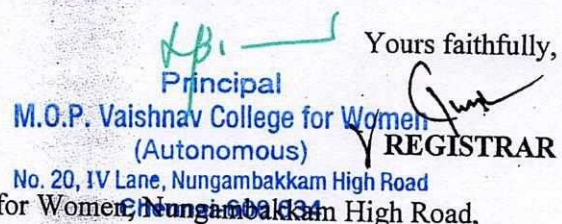 Yours faithfully,
Principal
M.O.P. Vaishnav College for Women
(Autonomous)
REGISTRAR
No. 20, IV Lane, Nungambakkam High Road
Chennai-600 034
for Women, Nungambakkam High Road,